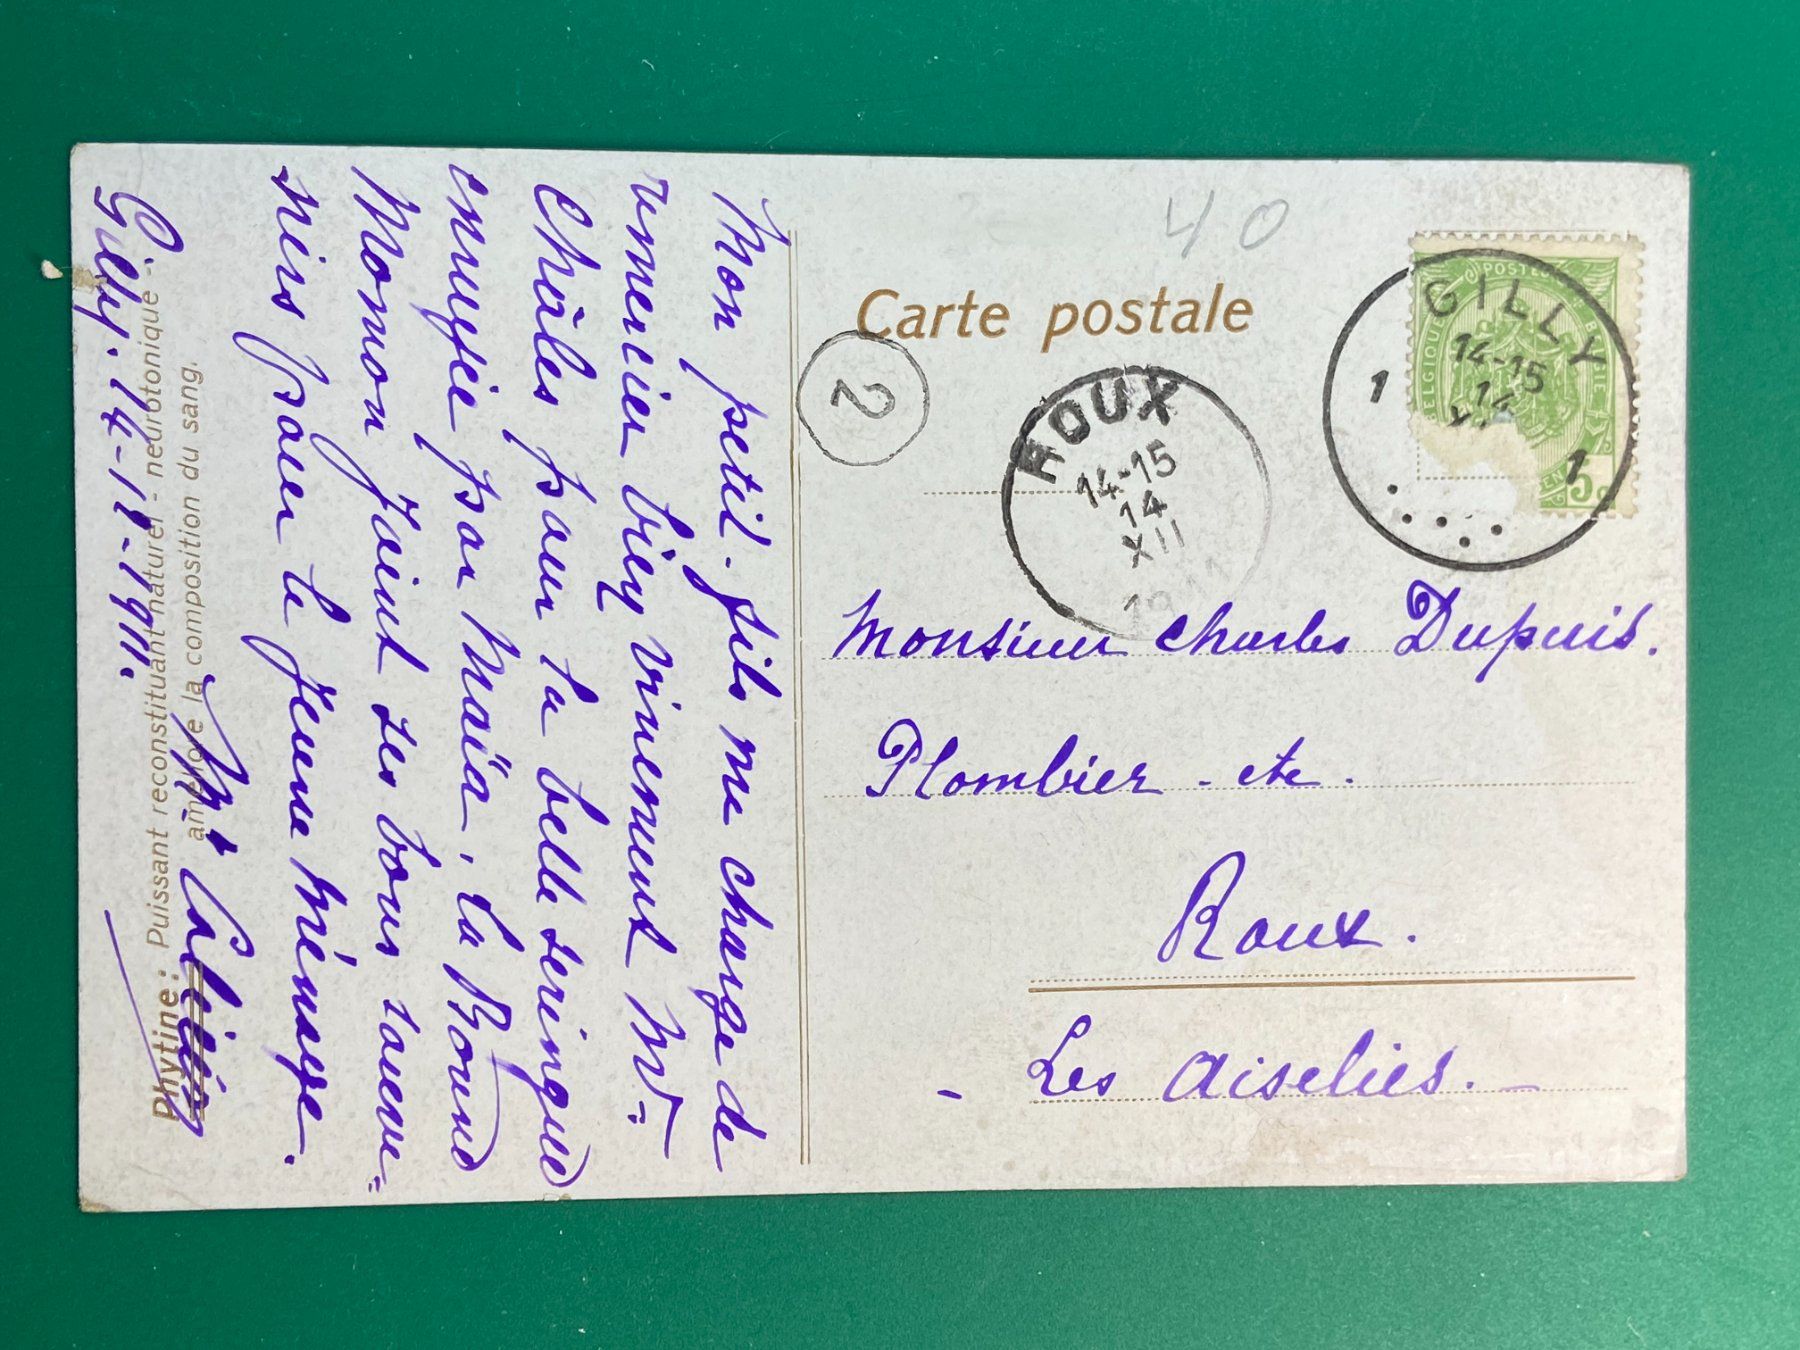 Mon petit fils me change de
remercier bien vivement Mr
Chôles pour la belle seringue
envoyée par Maïa, la Bound
Momon joint ses bons souve=
nirs pour le jeune ménage.
Gilly. 14-12-1911.
Phytine: Puissant reconstituant naturel - neurotonique -
améliore la composition du sang.
40
Carte postale
2
ROUX
14-15
14
XII
1911
GILLY
14-15
14
XII
1 1
POSTES
BELGIQUE
BELGIE
5
Monsieur Charles Dupuis.
Plombier - etc.
Roux.
Les Aiselies.